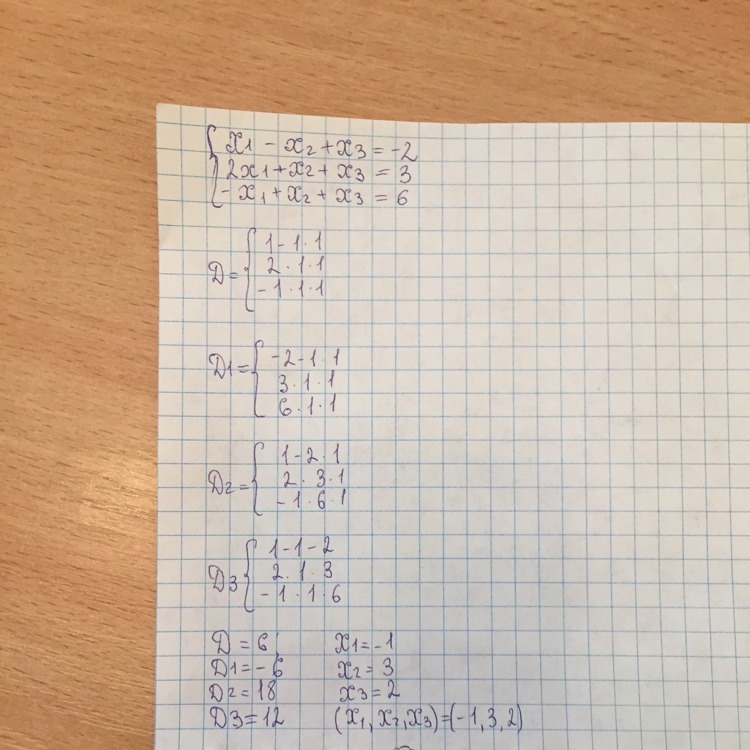 x1 - x2 + x3 = -2
2x1 + x2 + x3 = 3
- x1 + x2 + x3 = 6
D = { 1 - 1 · 1
2 · 1 · 1
- 1 · 1 · 1
D1 = { -2 - 1 · 1
3 · 1 · 1
6 · 1 · 1
D2 = { 1 - 2 · 1
2 · 3 · 1
- 1 · 6 · 1
D3 { 1 - 1 - 2
2 · 1 · 3
- 1 · 1 · 6
D = 6 x1 = -1
D1 = -6 x2 = 3
D2 = 18 x3 = 2
D3 = 12 (x1, x2, x3) = (-1, 3, 2)